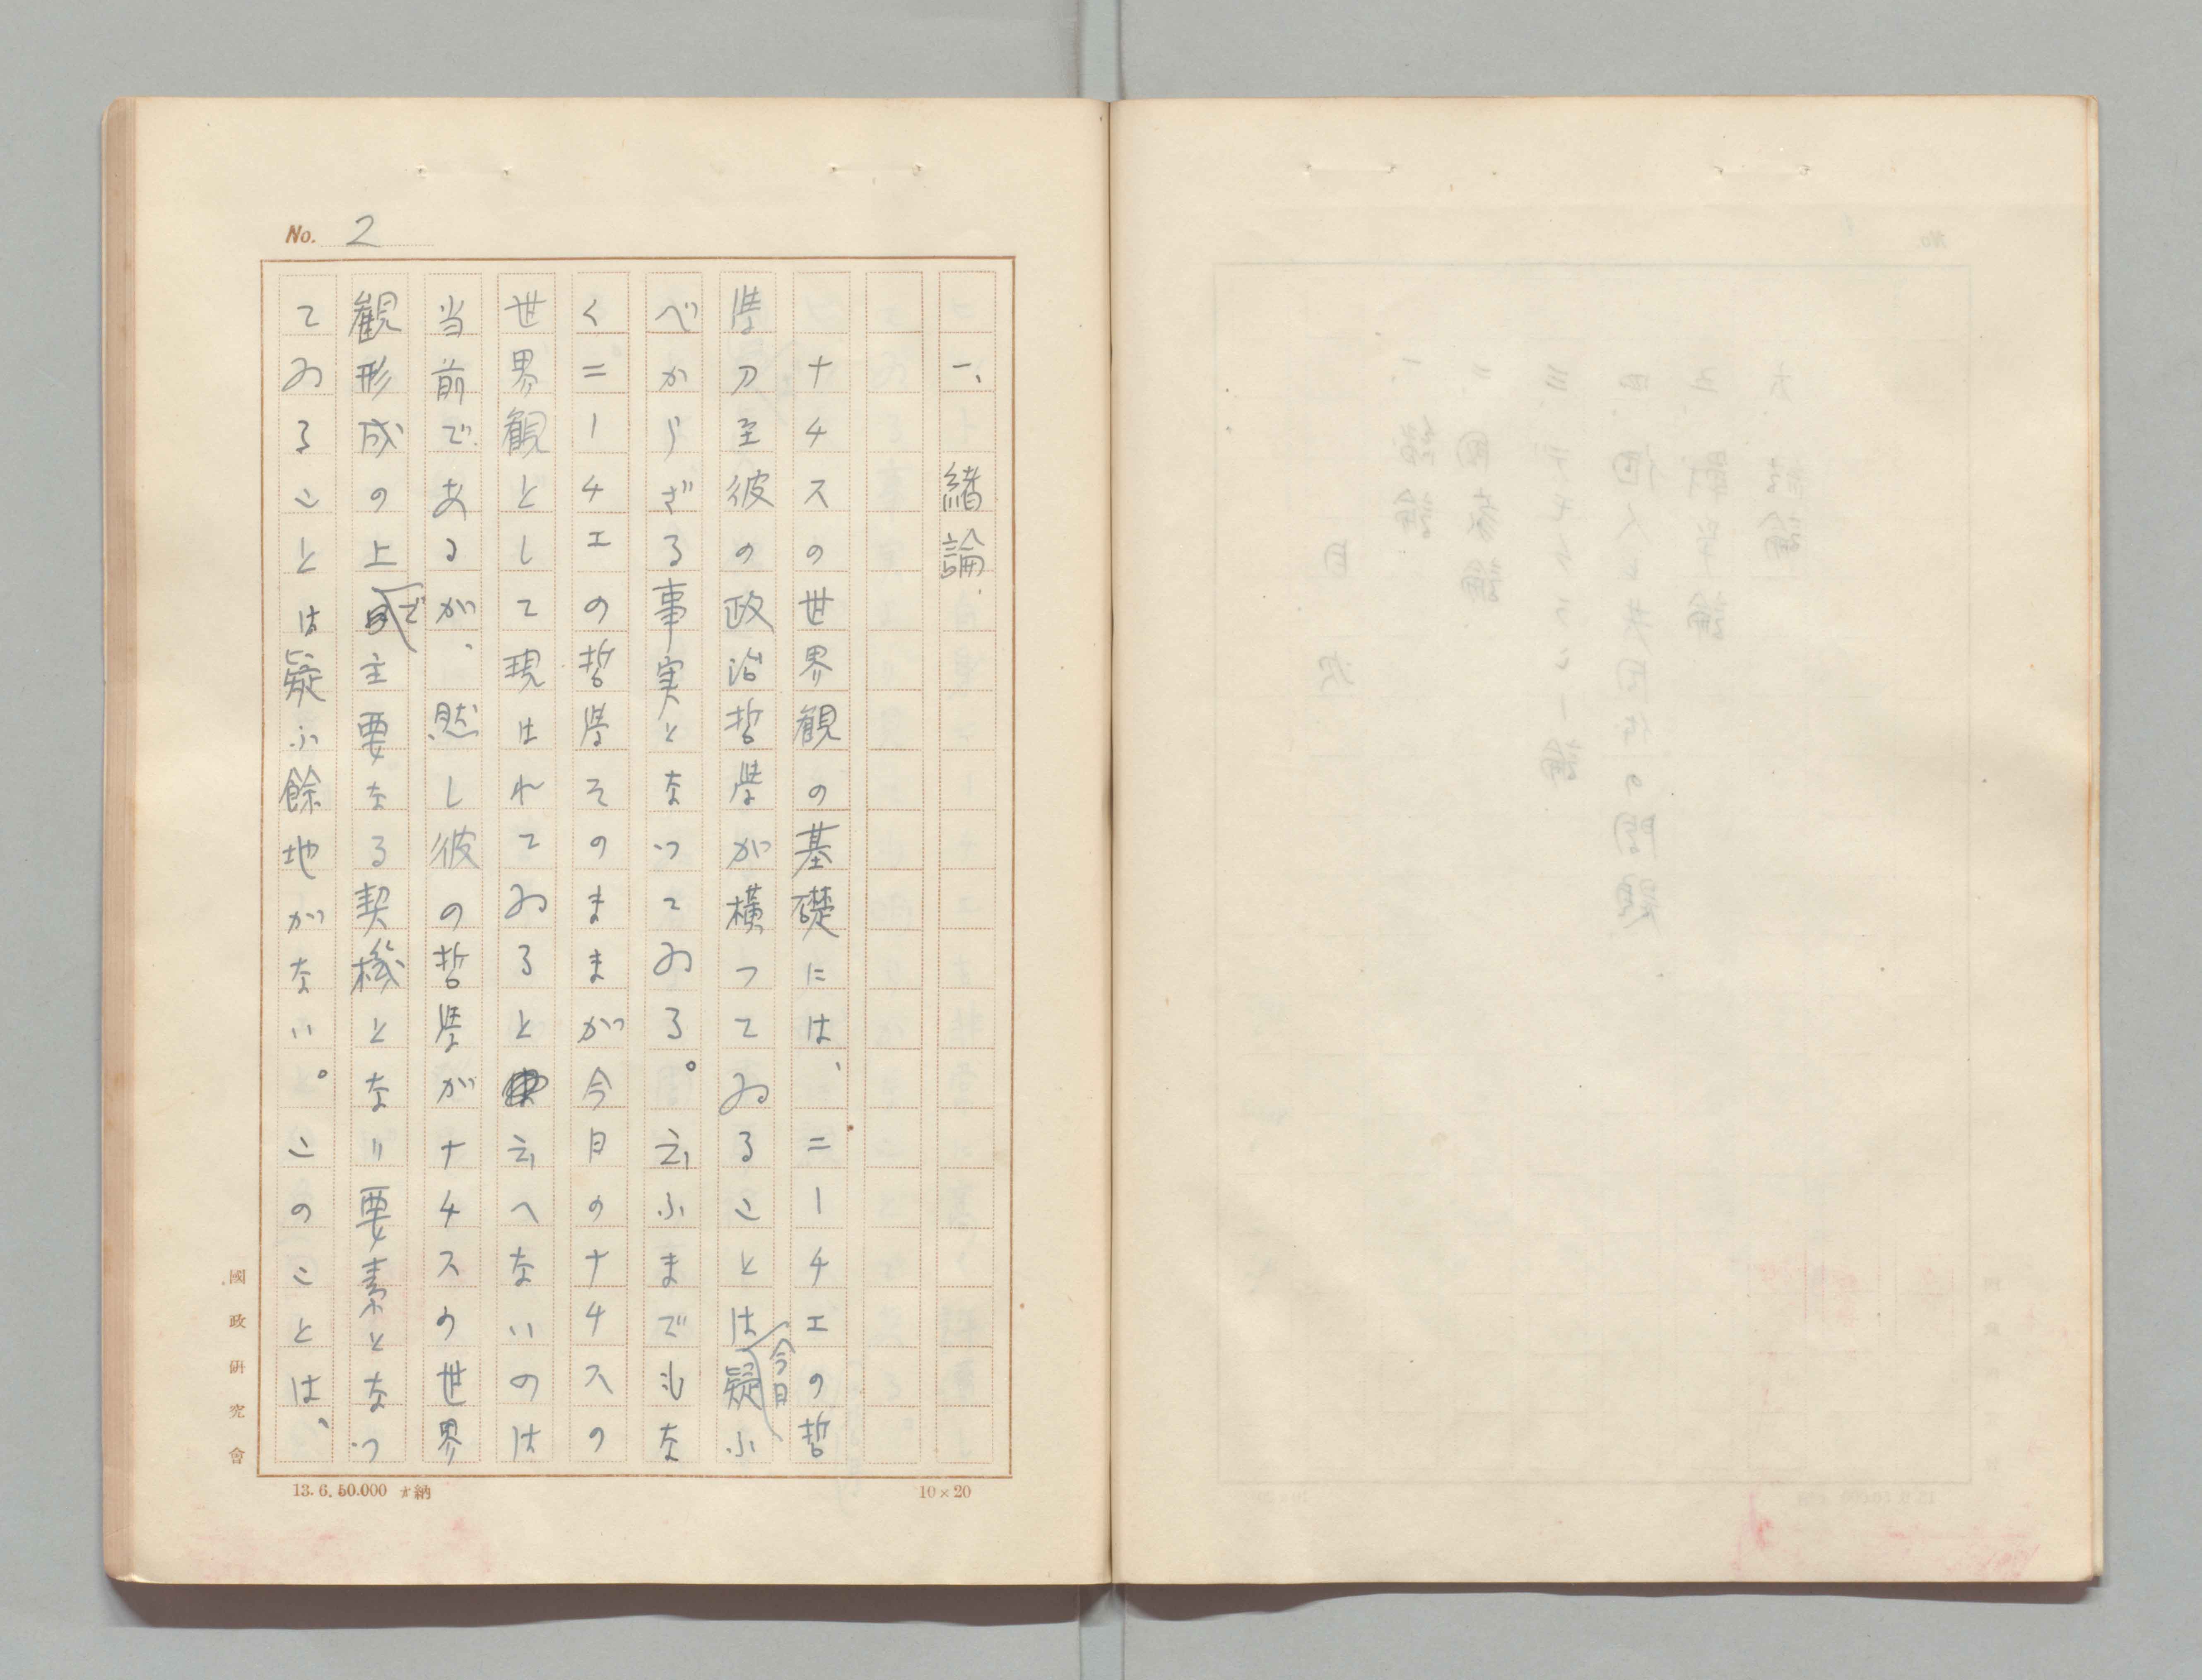 No. 2
一、緒論.
ナチスの世界観の基礎には、ニーチエの哲
学乃至彼の政治哲学が横つてゐることは今日疑ふ
べからざる事実となつてゐる。云ふまでもな
くニーチエの哲学そのままが今日のナチスの
世界観として現はれてゐると云へないのは
当前であるが、然し彼の哲学がナチスの世界
観形成の上で主要なる契機となり要素となつ
てゐることは疑ふ餘地がない。このことは、
國政研究會
13.6.50.000 納
10×20